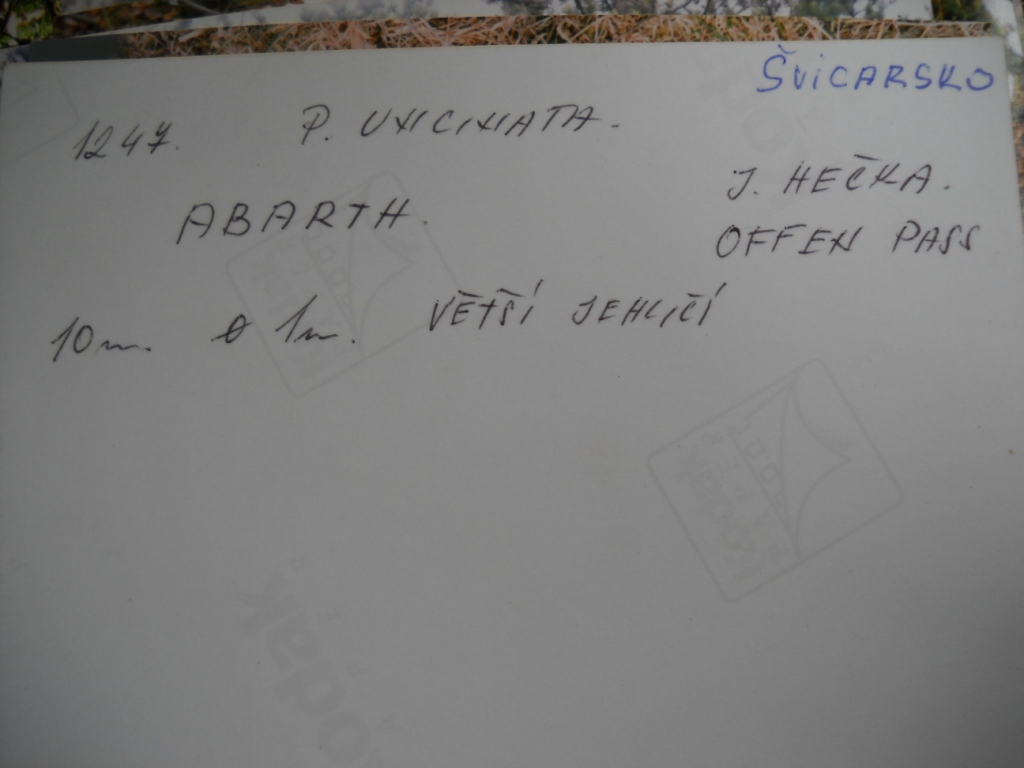 ŠVICARSKO
1247. P. UNCINATA.
J. HEČKA.
ABARTH.
OFFEN PASS
10m. ø 1m. VĚTŠÍ JEHLIČÍ